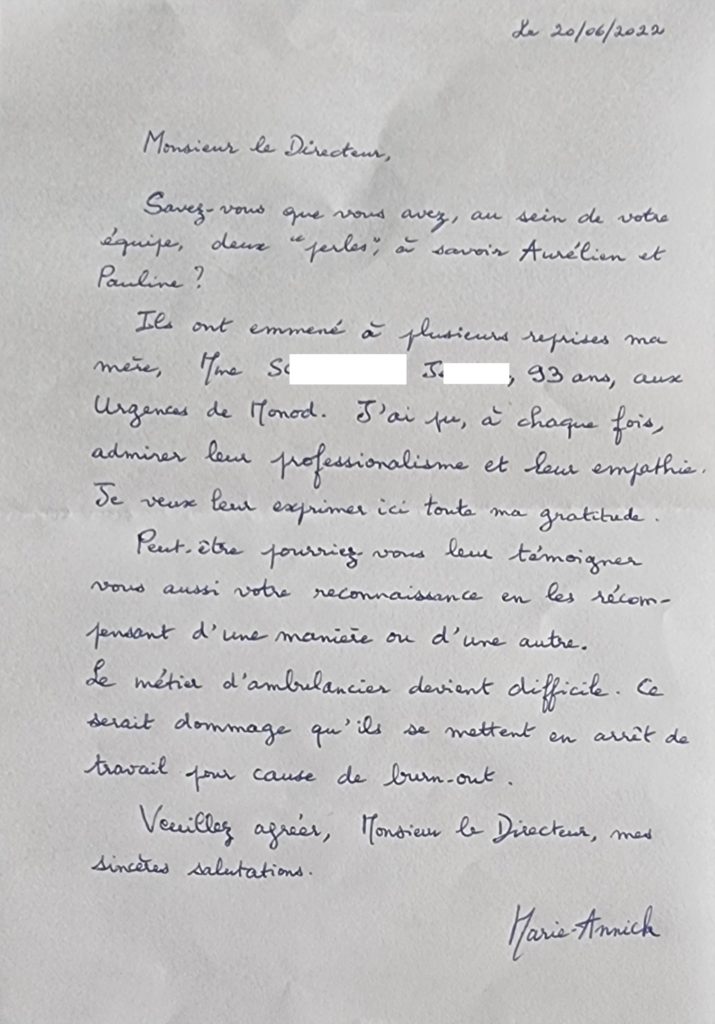 Le 20/06/2022
Monsieur le Directeur,
Savez-vous que vous avez, au sein de votre
équipe, deux "perles", à savoir Aurélien et
Pauline ?
Ils ont emmené à plusieurs reprises ma
mère, Mme S J, 93 ans, aux
Urgences de Monod. J'ai pu, à chaque fois,
admirer leur professionalisme et leur empathie.
Je veux leur exprimer ici toute ma gratitude.
Peut-être pourriez-vous leur témoigner
vous aussi votre reconnaissance en les récom-
pensant d'une manière ou d'une autre.
Le métier d'ambulancier devient difficile. Ce
serait dommage qu'ils se mettent en arrêt de
travail pour cause de burn-out.
Veuillez agréer, Monsieur le Directeur, mes
sincères salutations.
Marie-Annick